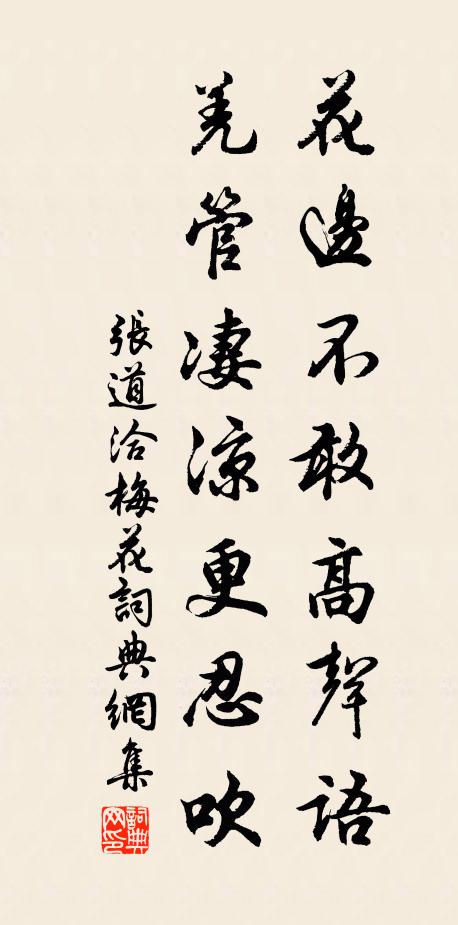 花邊不敢高聲語
羌管凄涼更忍吹
張道洽梅花詞典網集
詞典網印